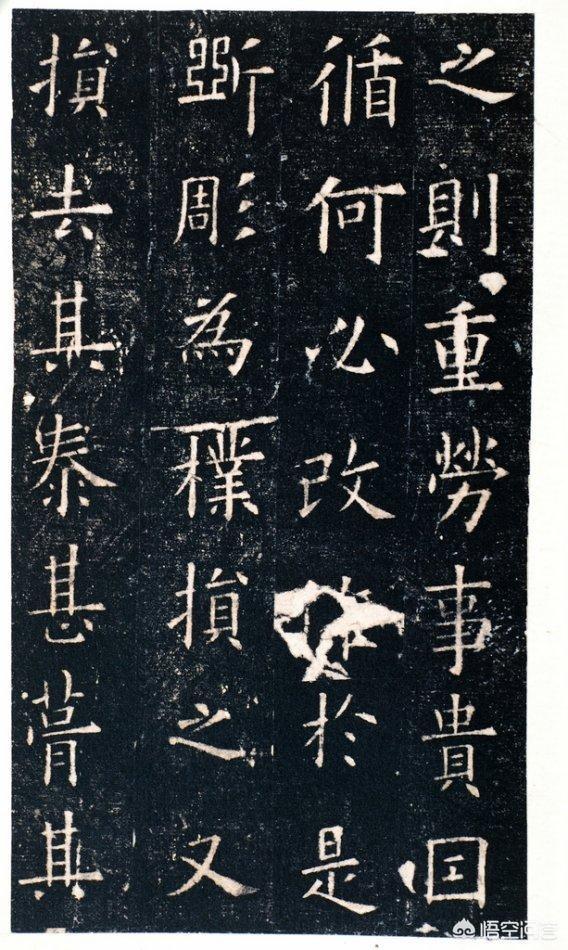 之則重勞事貴因
循何必改於是
斲彫為樸損之又
損去其泰甚葺其
悟空问答